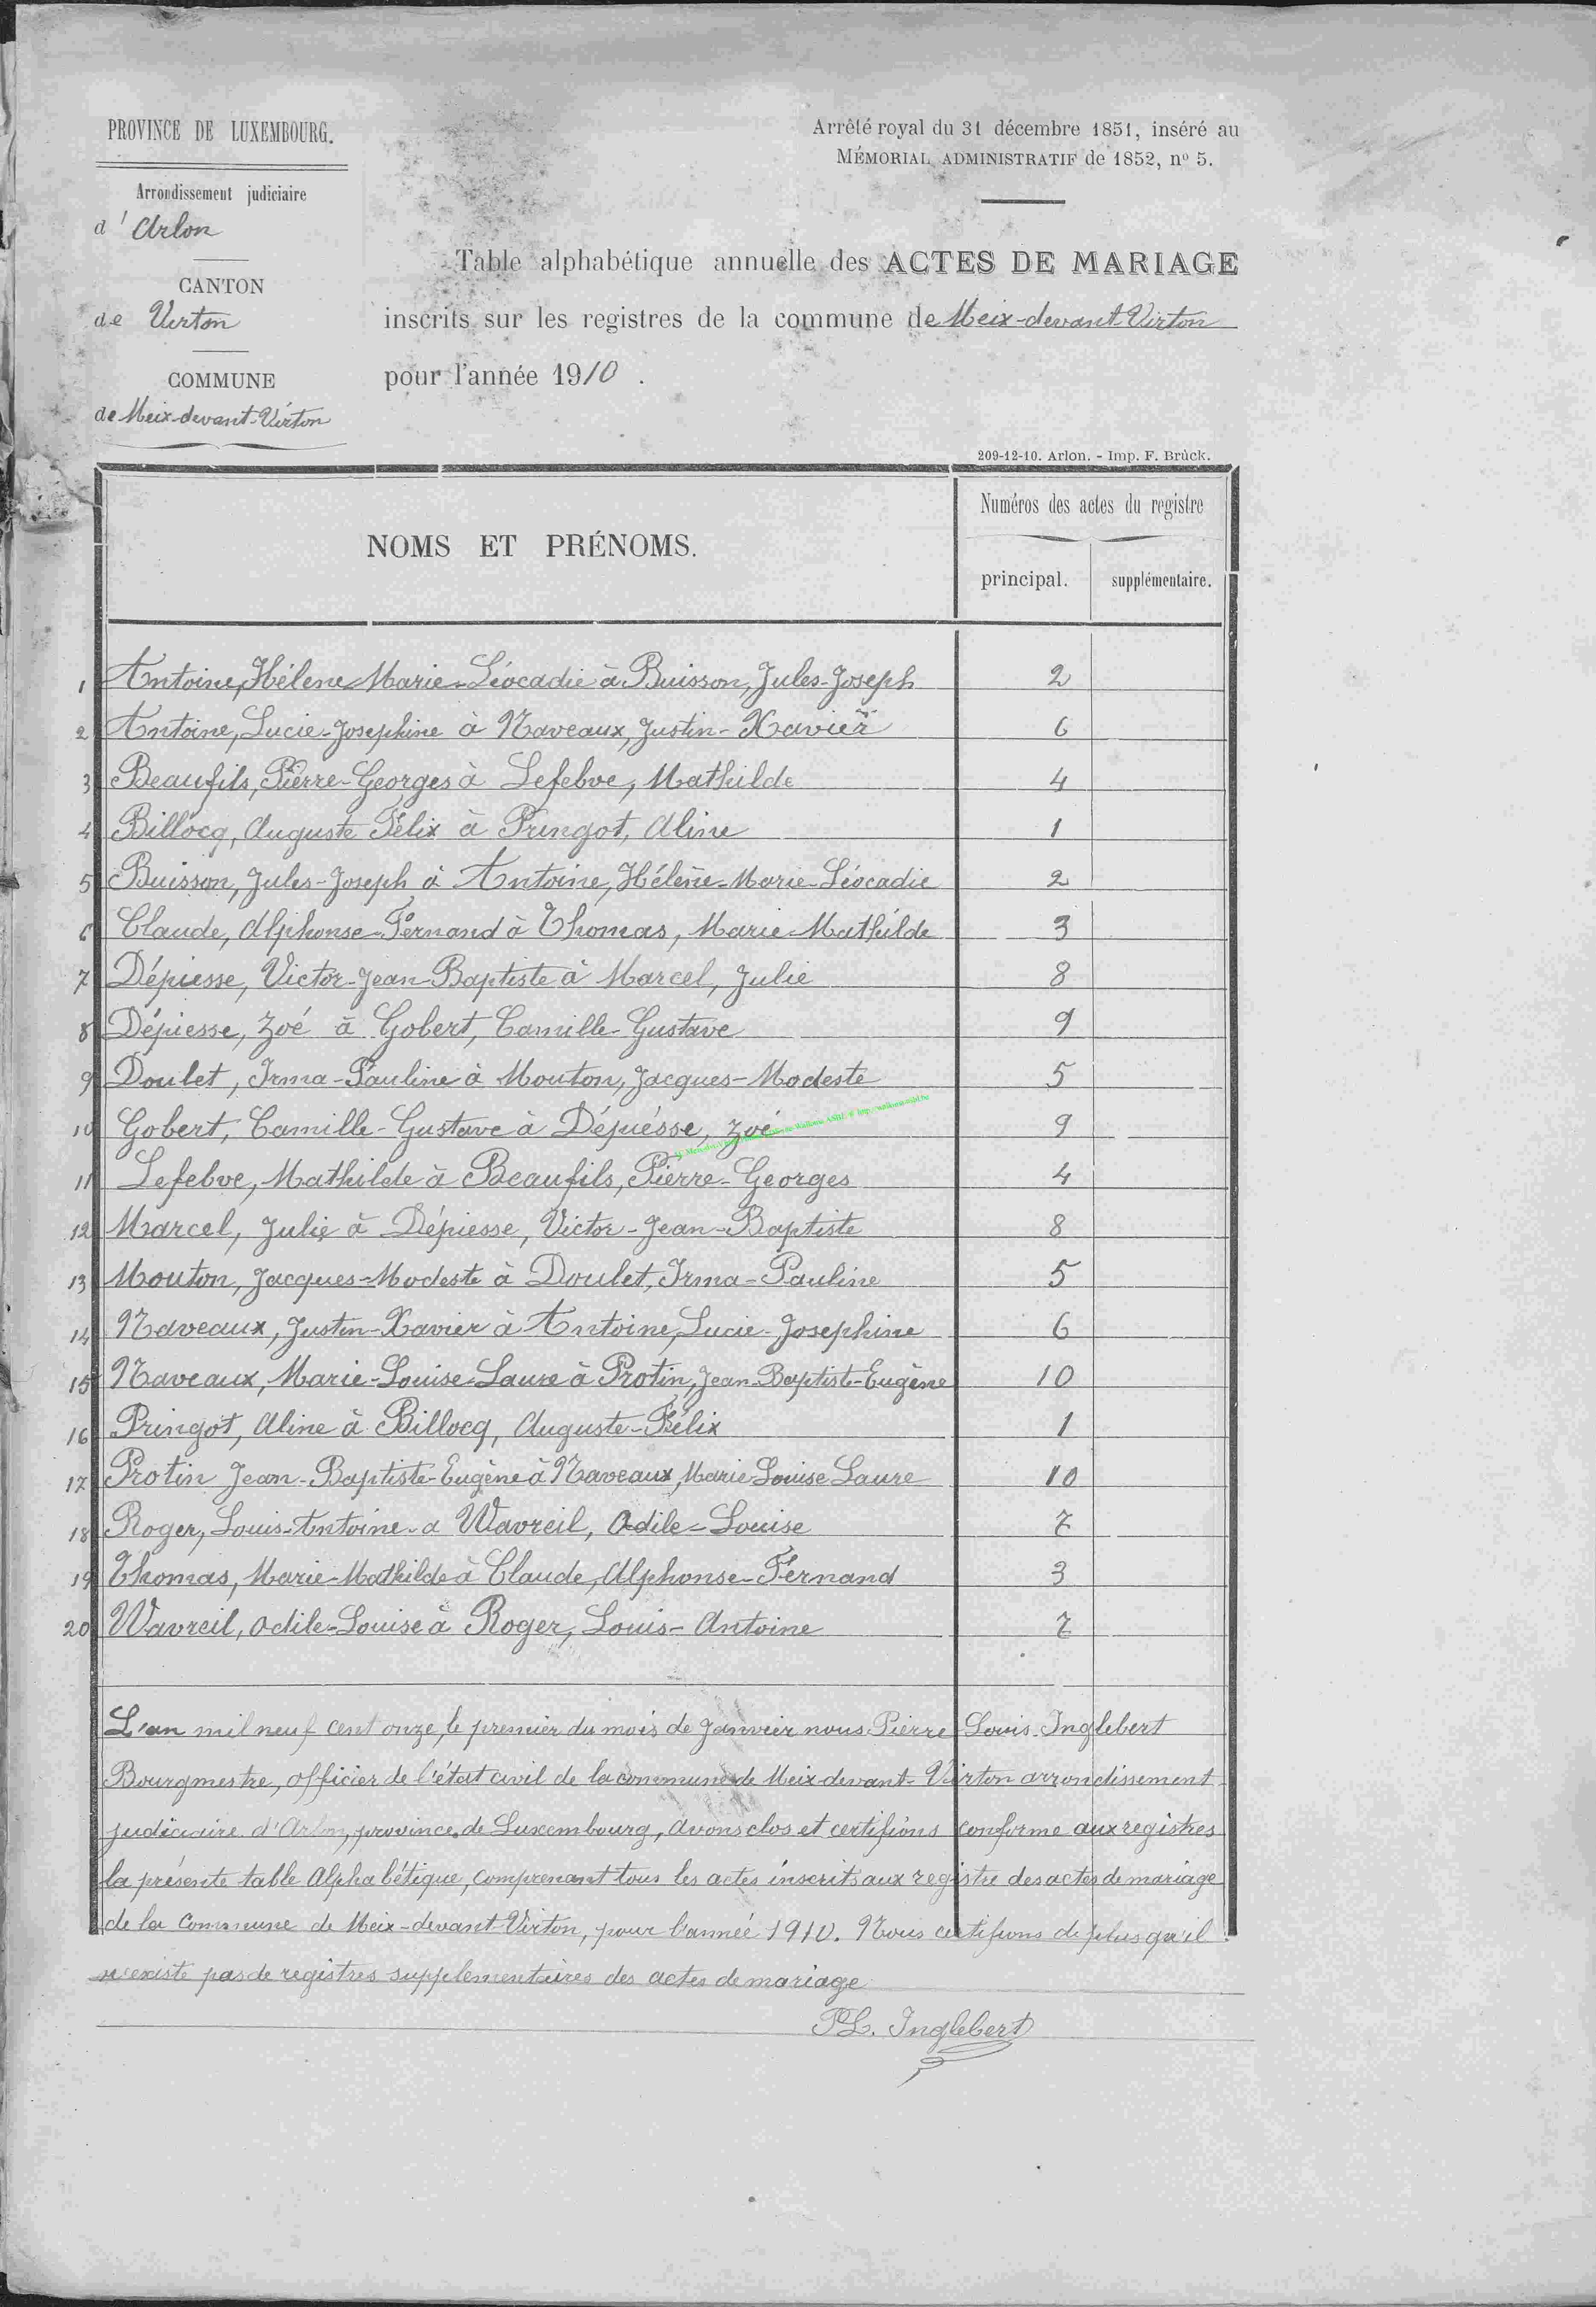 PROVINCE DE LUXEMBOURG.
Arrondissement judiciaire
d'Arlon
CANTON
de Virton
COMMUNE
de Meix-devant-Virton
Arrêté royal du 31 décembre 1851, inséré au
MÉMORIAL ADMINISTRATIF de 1852, nº 5.
Table alphabétique annuelle des ACTES DE MARIAGE
inscrits sur les registres de la commune de Meix-devant-Virton
pour l'année 1910.
209-12-10. Arlon. - Imp. F. Brück.
NOMS ET PRÉNOMS.
Numéros des actes du registre
principal. supplémentaire.
1 Antoine, Hélène Marie-Léocadie à Buisson, Jules-Joseph 2
2 Antoine, Lucie-Josephine à Naveaux, Justin-Xavier 6
3 Beaufils, Pierre-Georges à Lefebve, Mathilde 4
4 Billocq, Auguste Félix à Pringot, Aline 1
5 Buisson, Jules-Joseph à Antoine, Hélène-Marie-Léocadie 2
6 Claude, Alphonse-Fernand à Thomas, Marie-Mathilde 3
7 Dépiesse, Victor-Jean-Baptiste à Marcel, Julie 8
8 Dépiesse, Zoé à Gobert, Camille-Gustave 9
9 Doulet, Irma-Pauline à Mouton, Jacques-Modeste 5
10 Gobert, Camille-Gustave à Dépiésse, Zoé 9
11 Lefebve, Mathilde à Beaufils, Pierre-Georges 4
12 Marcel, Julie à Dépiesse, Victor-Jean-Baptiste 8
13 Mouton, Jacques-Modeste à Doulet, Irma-Pauline 5
14 Naveaux, Justin-Xavier à Antoine, Lucie-Josephine 6
15 Naveaux, Marie-Louise-Laure à Protin, Jean-Baptiste-Eugène 10
16 Pringot, Aline à Billocq, Auguste-Félix 1
17 Protin Jean-Baptiste-Eugène à Naveaux, Marie Louise Laure 10
18 Roger, Louis-Antoine-a Wavreil, Odile-Louise 7
19 Thomas, Marie-Mathilde à Claude, Alphonse-Fernand 3
20 Wavreil, Odile-Louise à Roger, Louis-Antoine 7
L'an mil neuf cent onze, le premier du mois de Janvier nous Pierre Louis Inglebert
Bourgmestre, officier de l'état civil de la commune de Meix-devant-Virton arrondissement
judiciaire d'Arlon, province de Luxembourg, avons clos et certifions conforme aux registres
la présente table Alphabétique, comprenant tous les actes inscrits aux registre des actes de mariage
de la Commune de Meix-devant-Virton, pour l'année 1910. Nous certifions de plus qu'il
n'existe pas de registres supplementaires des actes de mariage
PL. Inglebert